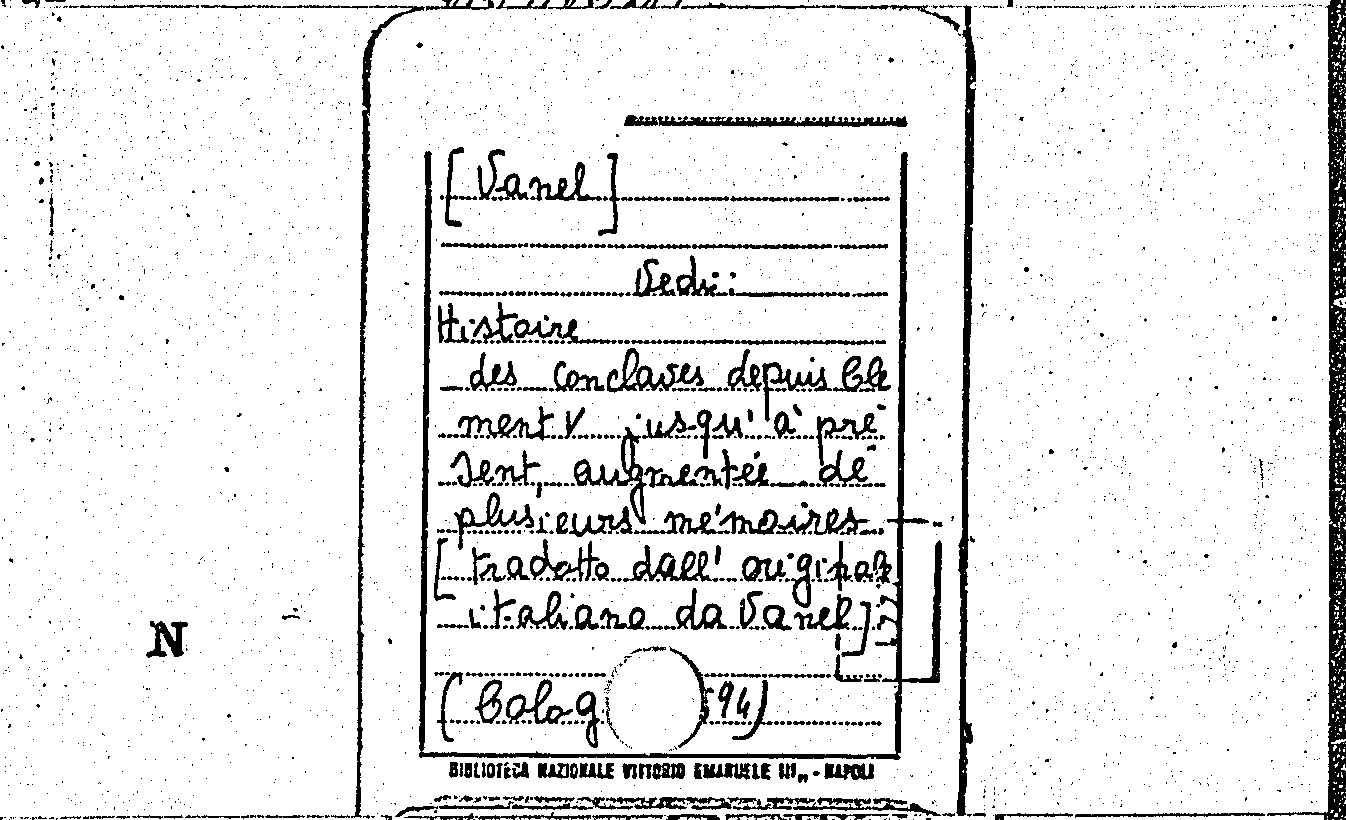 [Vanel]
Vedi:
Histoire
des conclaves depuis Clé
ment V jusqu'à pré
sent, augmentée de
plusieurs mémoires.
[tradotto dall' originale
italiano da Vanel]
(Colog 94)
N
BIBLIOTECA NAZIONALE VITTORIO EMANUELE III„ - NAPOLI